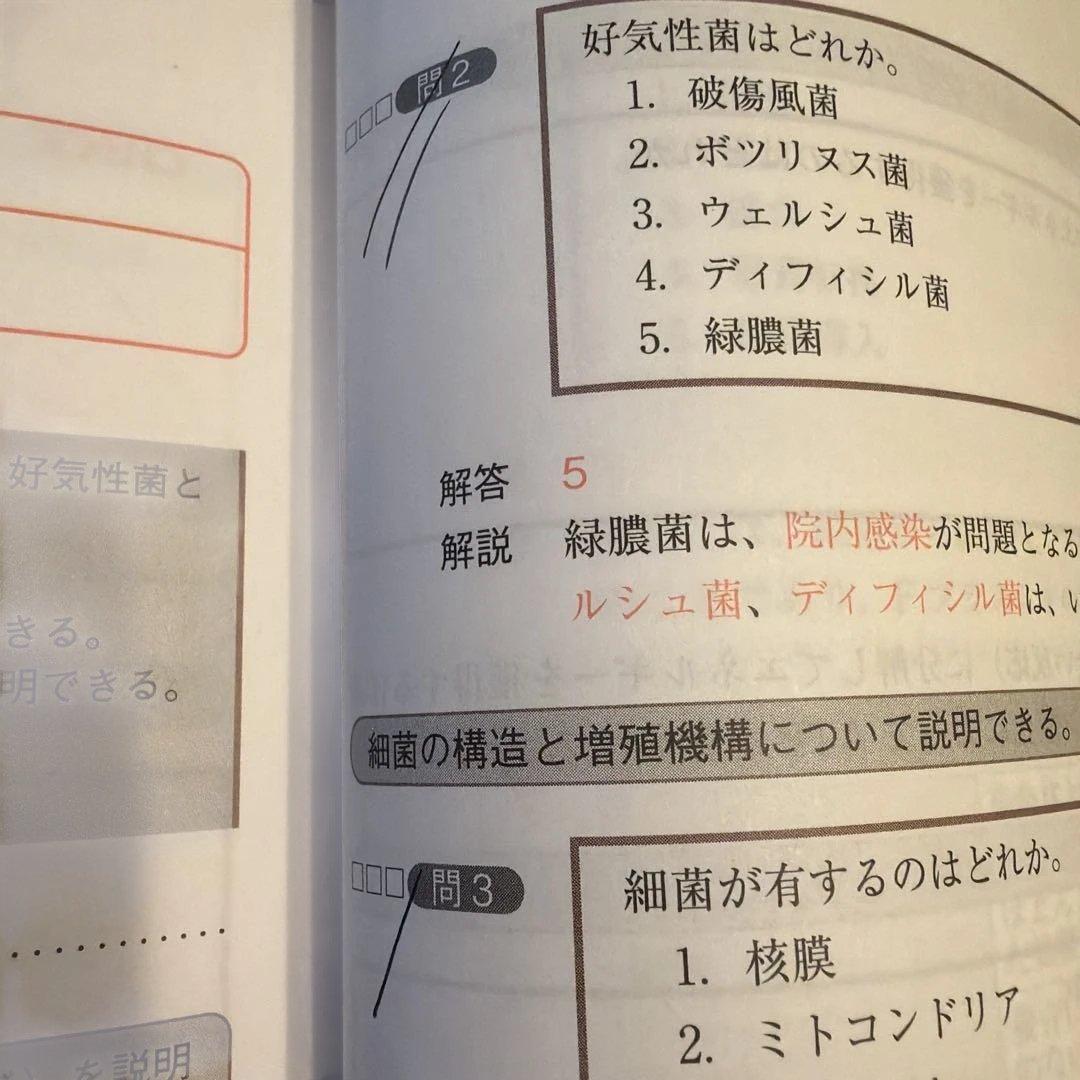 好気性菌と
きる。
明できる。
を説明
問2
好気性菌はどれか。
1. 破傷風菌
2. ボツリヌス菌
3. ウェルシュ菌
4. ディフィシル菌
5. 緑膿菌
解答 5
解説 緑膿菌は、院内感染が問題となる
ルシュ菌、ディフィシル菌は、い
細菌の構造と増殖機構について説明できる。
問3
細菌が有するのはどれか。
1. 核膜
2. ミトコンドリア